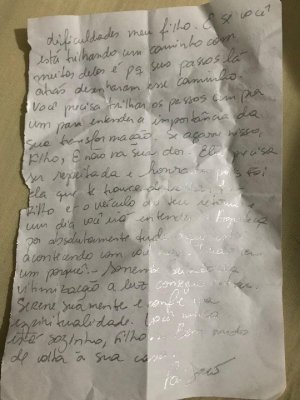 dificuldades meu filho. E se você
está trilhando um caminho com
muitos deles é pq seus passos lá
atrás desenharam esse caminho.
Você precisa trilhar os passos um por
um para entender a importância da
sua transformação. Se acesso nisso,
filho, E não na sua dor. Ela precisa
ser respeitada e honrada pois foi
ela que te trouxe de
filho e o veículo do seu
um dia você irá entender.
por absolutamente tudo
acontecendo com você
um porquê. Somente saindo da
vitimização a luz consegue
Serene sua mente e confie na
espiritualidade. Você nunca
está sozinho, filho. Bem vindo
de volta à sua casa.